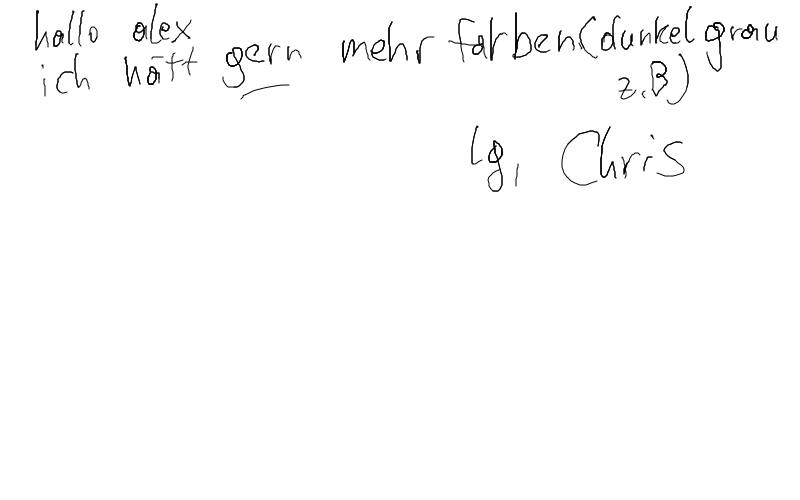 hallo alex
ich hätt gern mehr farben (dunkelgrau
z.B)
lg, Chris